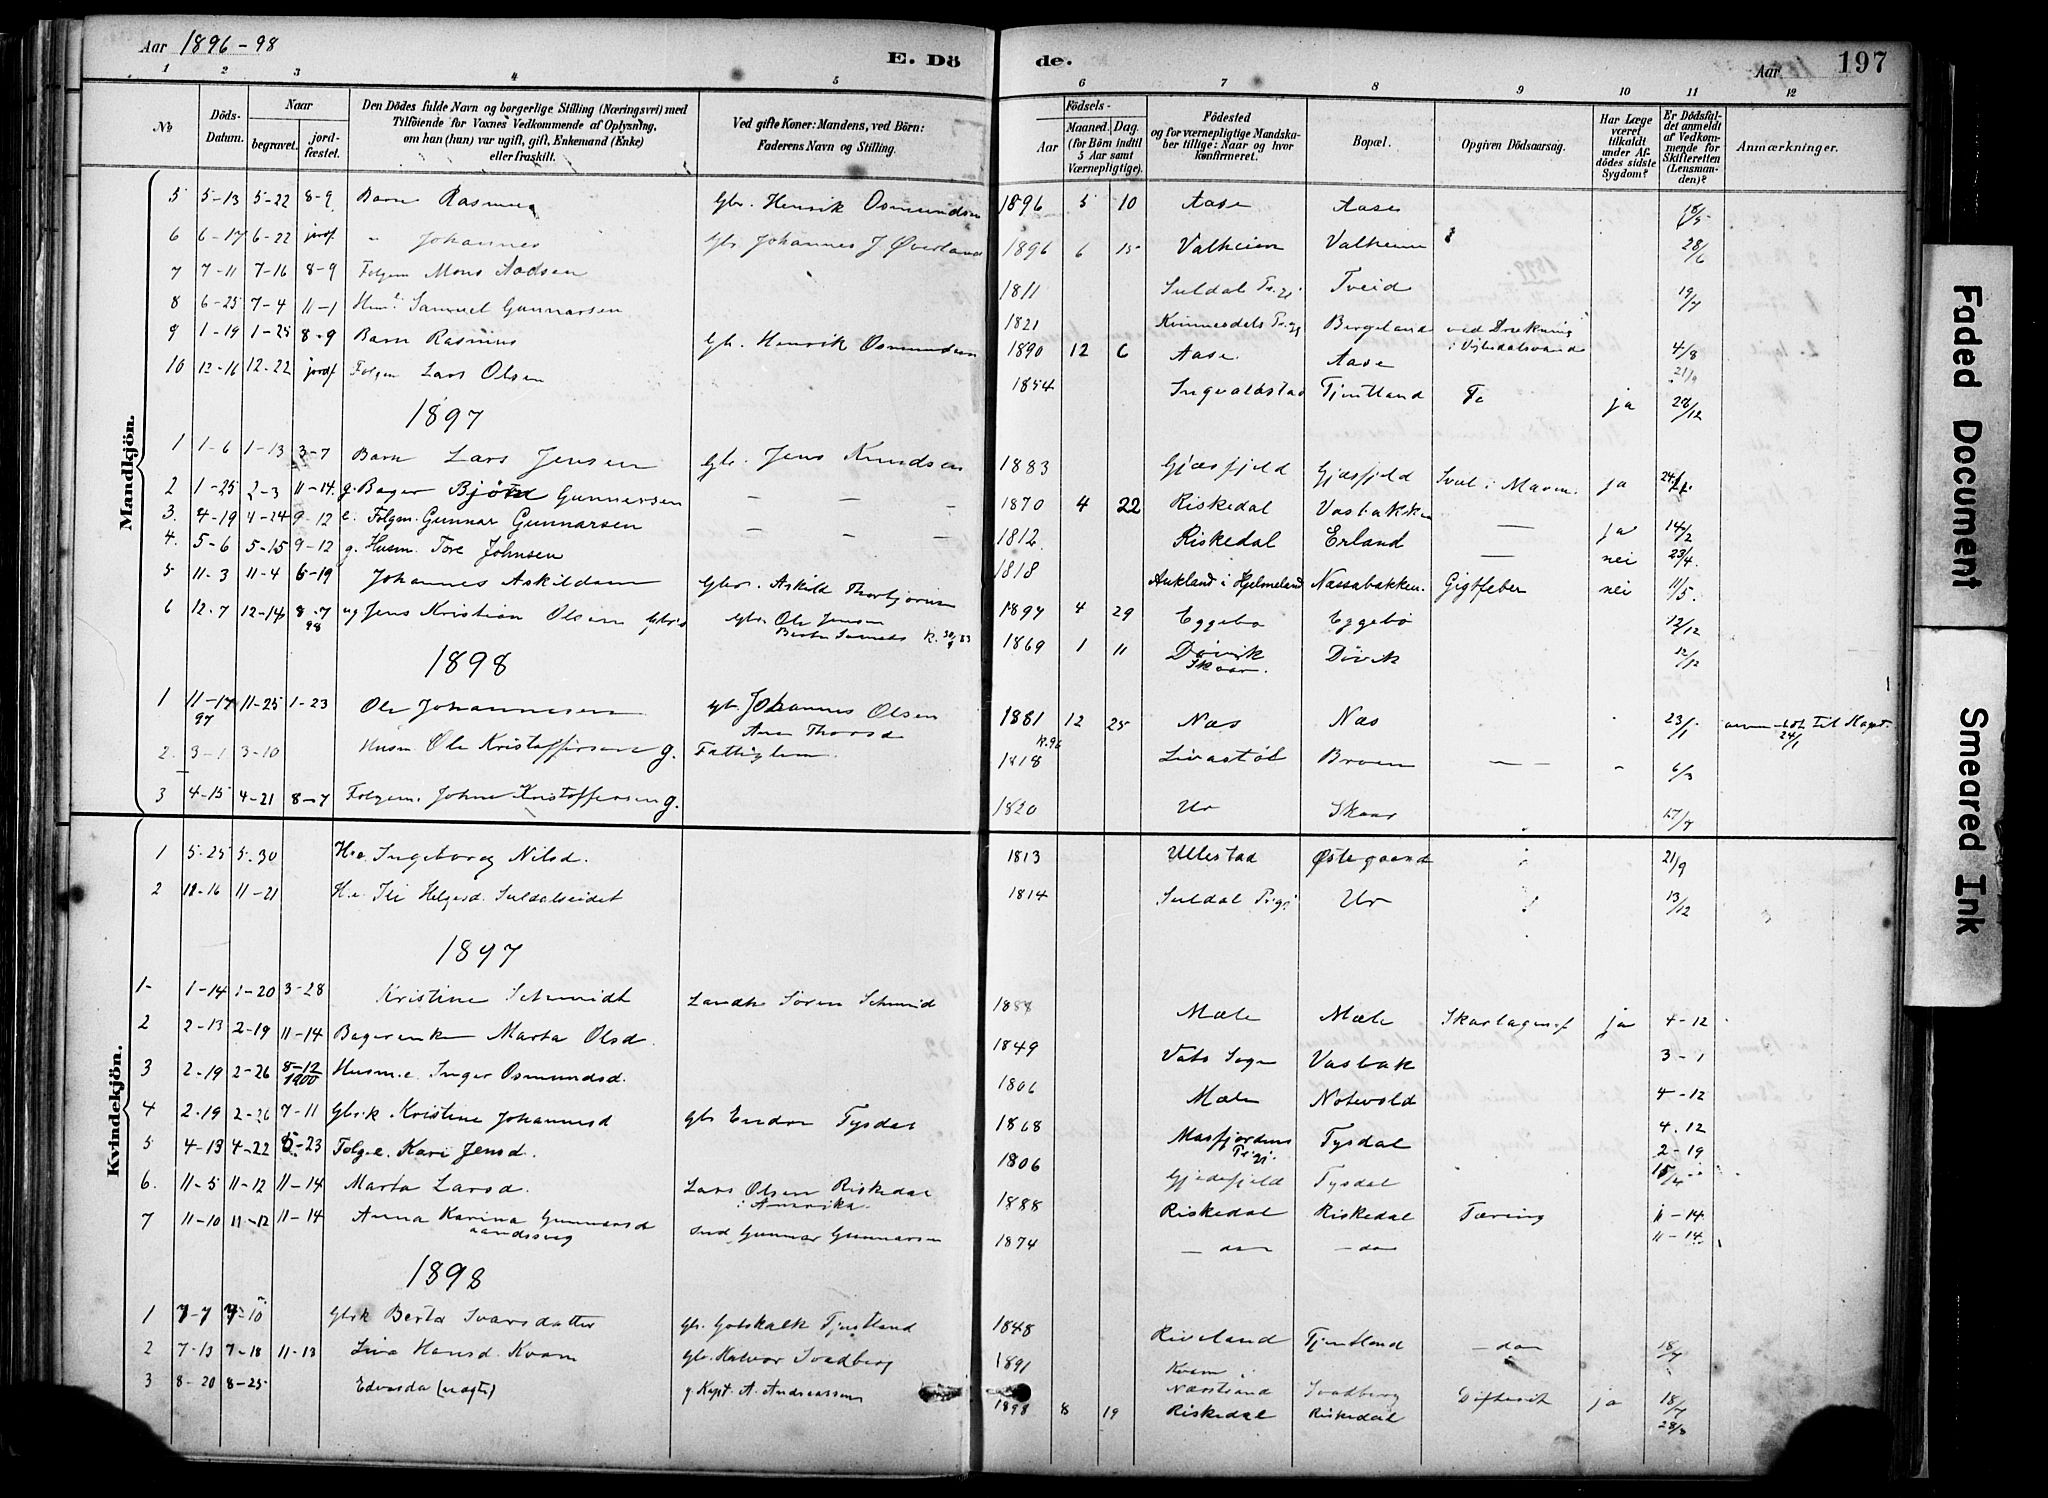 Aar 1896-98
E. Dö de.
Aar
197
1 2 3 4 5 6 7 8 9 10 11 12
No
Döds-Datum.
Naar
begravet.
jordfæstet.
Den Dödes fulde Navn og borgerlige Stilling (Næringsvei) med
Tilföiende for Voxnes Vedkommende af Oplysning,
om han (hun) var ugift, gift, Enkemand (Enke)
eller fraskilt.
Ved gifte Koner: Mandens, ved Börn:
Faderens Navn og Stilling.
Födsels-
Aar
Maaned. Dag.
(for Börn indtil
5 Aar samt
Værnepligtige).
Födested
og for værnepligtige Mandska-
ber tillige: Naar og hvor
konfirmeret.
Bopæl.
Opgiven Dödsaarsag.
Har Læge
været
tilkaldt
under Af-
dödes sidste
Sygdom?
Er Dödsfal-
det anmeldt
af Vedkom-
mende for
Skifteretten
(Lensman-
den)?
Anmærkninger.
Mandkjön.
5 5-13 5-22 8-9 Barn Rasmus Gbr. Henrik Osmundsen 1896 5 10 Aase Aase 18/5
6 6-17 6-22 jordf " Johannes Gbr Johannes J Øverland 1896 6 15 Valheim Valheim 28/6
7 7-11 7-16 8-9 Folgem Mons Aadsen 1811 Suldal Prgj Tveid 19/7
8 6-25 7-4 11-1 Samuel Gunnarsen 1821 Kvinnesdals Prgj Bergeland ved Drukning
9 1-19 1-25 8-9 Barn Rasmus Gbr. Henrik Osmundsen 1890 12 6 Aase Aase 4/8
21/9
10 12-16 12-22 jordf Folgem Lars Olsen 1854 Ingvaldstad Tjentland ja 28/12
1897
1 1-6 1-13 3-7 Barn Lars Jensen Gbr. Jens Knudsen 1883 Gjæsfjeld Gjæsfjeld ja
2 1-25 2-3 11-14 g. Bager Bjørn Gunnarsen — — - 1870 4 22 Riskedal Vasbakken — ja 14/2
3. 4-19 4-24 9-12 e. Folgm. Gunnar Gunnarsen — - - 1812 Riskedal Erland — nei 23/4.
4. 5-6 5-15 9-12 g. Husm. Tore Johnsen 1818 Aukland i Hjelmeland Næssabakken. Gigtfeber nei 11/5.
5 11-3 11-4 6-19 Johannes Askildsen Gbr. Askild Thorbjørnsen 1897 4 29 Eggebø Eggebø 12/12
6 12-7 12-14 8-7 98 ug Jens Kristian Olsen Gbr. Ole Jensen 1869 1 11 Døvik Døvik 12/12
Skaar.
1898
1 11-17 97 11-25 1-23 Ole Johannesen gbr. Johannes Olsen 1881 12 25 Næs Næs 23/1
k. 96
2. 3-1 3-10 Husm Ole Kristoffersen g. Fattiglem. 1818 Livastøl Broen — — - 6/3
3 4-15 4-21 8-7 Folgem. John Kristoffersen g. 1820 Ur Skaar 17/7
Kvindekjön.
1 5-25 5-30 H.e. Ingeborg Nilsd. 1813 Ullestad Østegaard 21/9
2 11-16 11-21 H.e Ili Helgesd. Suldalseidet 1814 Suldal Prgj Ur 13/12
1897
1- 1-14 1-20 3-28 Kristine Schmidt Landh Søren Schmid 1888 Mæle Mæle Skarlagensf ja 4-12
2 2-13 2-19 11-14 Bagerenke Marta Olsd. 1849 Vats Sogn Vasbak 3-1
3 2-19 2-26 8-12 1900 Husm.e. Inger Osmundsd. 1806 Mæle Notevold 4-12
4 2-19 2-26 7-11 gbrk Kristine Johannesd gbr Endre Tysdal 1868 Masfjordens Prgj. Tysdal 4.12
2-19
5 4-13 4-22 5-23 Folg.e. Kari Jensd. 1806 Gjedefjeld Tysdal 15/4
6. 11-5 11-12 11-14 Marta Larsd. Lars Olsen Riskedal i Amerika 1888 Riskedal Riskedal Tæring 11-14
7 11-10 11-12 11-14 Anna Karina Gunnarsd aandssvag Ind Gunnar Gunnarsen 1874 — do — do 11-14
1898
1 7-7 7-10 Gbrk Berta Ivarsdatter gbr. Gotskalk Tjentland 1848 Riveland Tjentland — do 18/7
2 7-13 7-18 11-13 Liva Hansd. Kvam gbr. Halvor Svadberg 1891 Kvam i Nærstrand Svadberg Difterit ja 18/7
3 8-20 8-25 Edvarda (uægte) g. Kapt. A. Andreassen 1898 8 19 Riskedal Riskedal 28/8
Faded Document
Smeared Ink